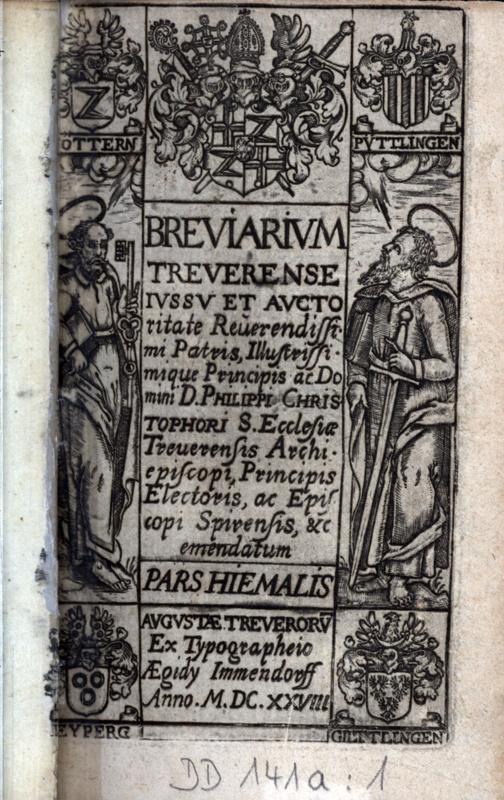 OTTERN
PVTTLINGEN
BREVIARIVM
TREVERENSE
IVSSV ET AVCTO
ritate Reuerendissi-
mi Patris, Illustrissi-
mique Principis ac Do
mini D. PHILIPPI CHRIS
TOPHORI S. Ecclesiæ
Treuerensis Archi-
episcopi, Principis
Electoris, ac Epis
copi Spirensis, &c
emendatum
PARS HIEMALIS
AVGVSTÆ TREVERORŨ
Ex Typographeio
Ægidy Immendorff
Anno. M. DC. XXVIII
EYPERG
GILTTLINGEN
DD 141a : 1